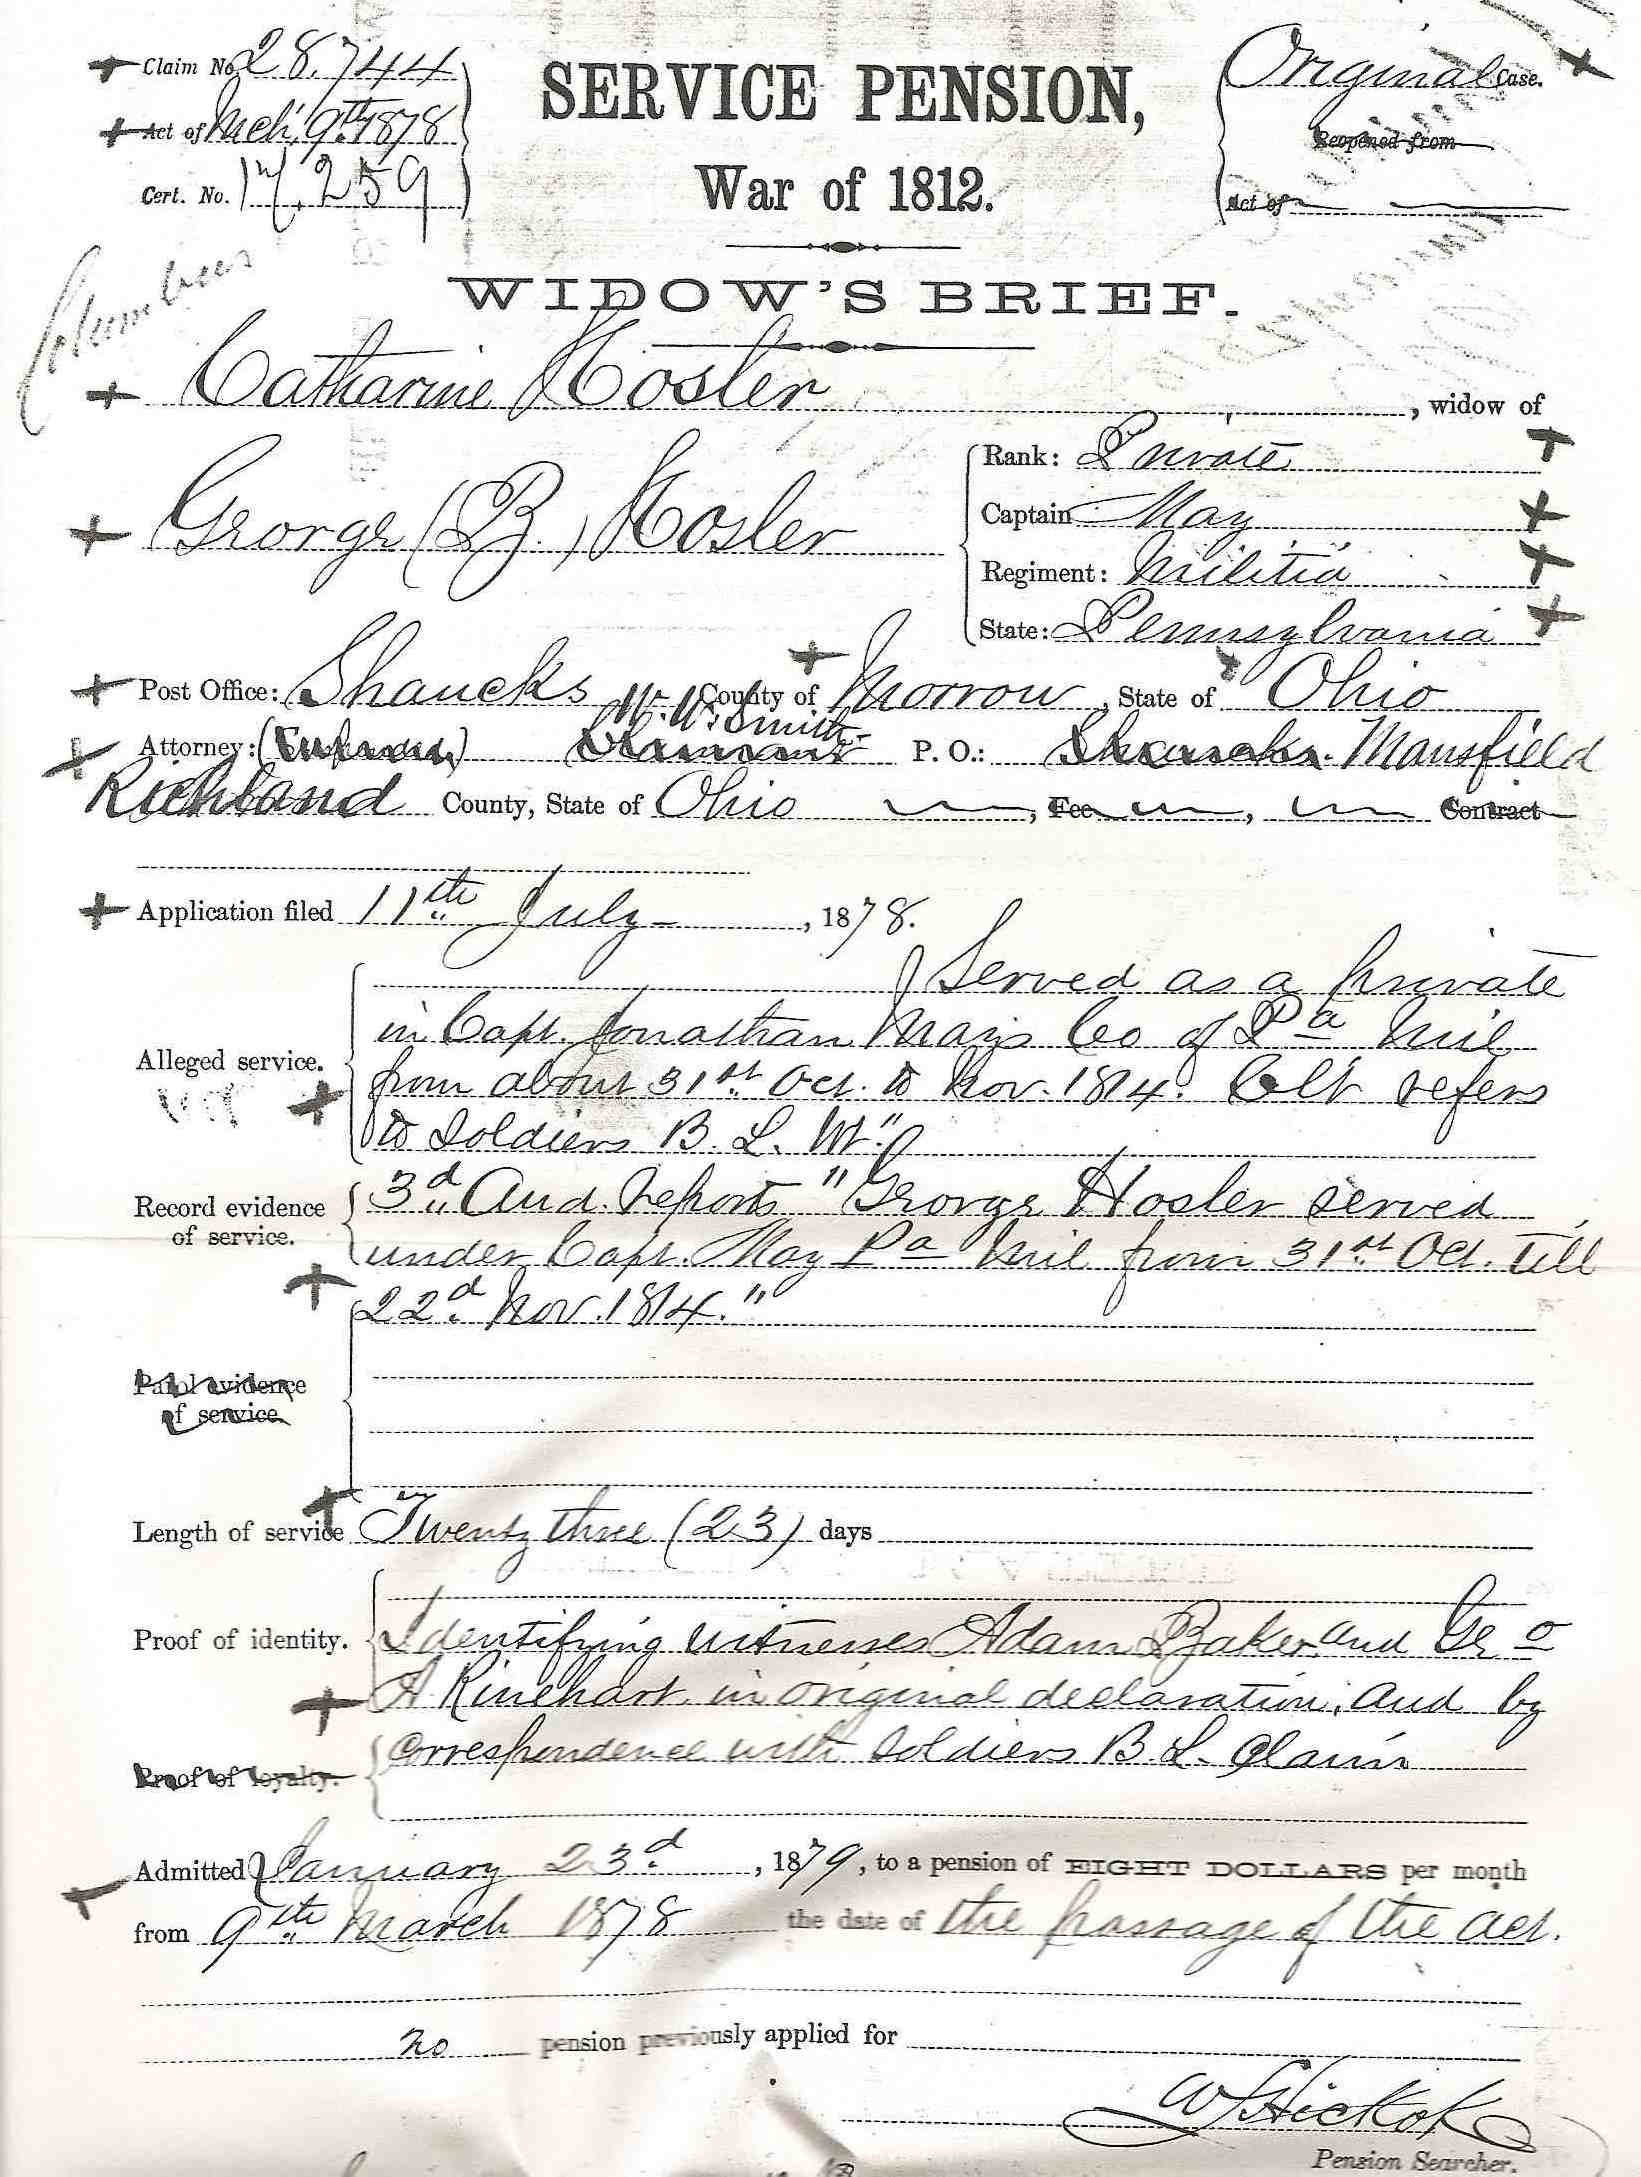 Claim No. 28,744
Act of Mch. 9th 1878
Cert. No. 17,259
SERVICE PENSION,
War of 1812.
Original Case.
Reopened from
Act of
WIDOW'S BRIEF.
Columbus
Catharine Hosler, widow of
George (B.) Hosler
Rank: Private
Captain May
Regiment: Militia
State: Pennsylvania
Post Office: Shaucks County of Morrow, State of Ohio
W. W. Smith
Attorney: Claimant P. O.: Shaucks. Mansfield
Richland County, State of Ohio, Fee, Contract
Application filed 11th July, 1878.
Alleged service.
Served as a private
in Capt. Jonathan Mays Co of Pa Mil
from about 31st Oct. to Nov. 1814. Clt. refers
to soldiers B. L. Wt."
Record evidence
of service.
3d Aud. reports "George Hosler served
under Capt. May Pa Mil from 31st Oct. till
22d Nov. 1814."
Parol evidence
of service.
Length of service Twenty three (23) days
Proof of identity.
Identifying witnesses Adam Baker and Geo
A Rinehart in original declaration, and by
correspondence with soldiers B. L. Claim
Proof of loyalty.
Admitted January 23d, 1879, to a pension of EIGHT DOLLARS per month
from 9th March 1878 the date of the passage of the act.
no pension previously applied for
W S Hickok
Pension Searcher.